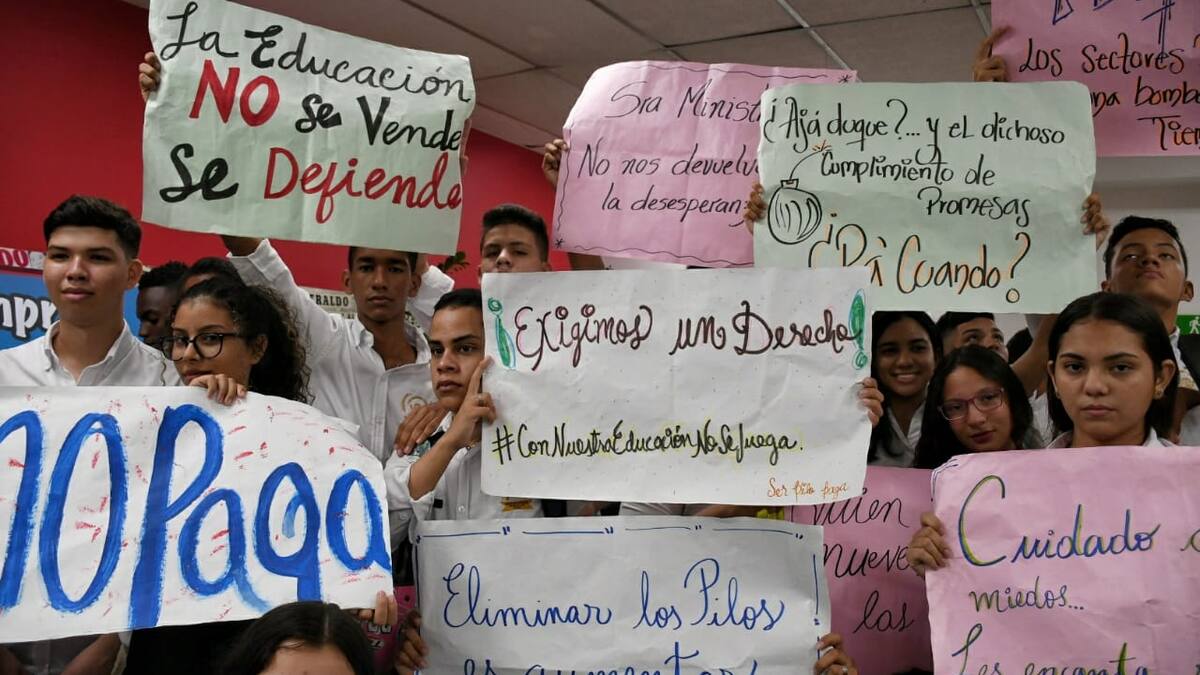 La Educación
NO se Vende
Se Defiende
Sra
No nos devuelva
la
¿Ajá duque?...y el dichoso
Cumplimiento de
Promesas
¿Pá Cuando?
Los Sectores
bomba
¡Exigimos un Derecho!
#ConNuestraEducaciónNoSeJuega.
Ser pilo paga
Paga
Eliminar los Pilos
es aumentar
nueve
las
Cuidado
miedos...
Les encanta